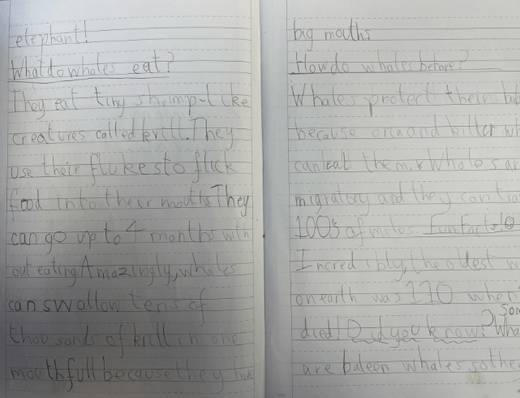 elephant!
What do whales eat?
They eat tiny shrimp-like
creatures called krill. They
use their flukes to flick
food into their mouths They
can go up to 4 months with
out eating Amazingly, whales
can swallow tens of
thousands of krill in one
mouthfull because they
big mouths
How do whales behave?
Whales protect their
because orca and killer
can eat them. Whales
migratory and they can
100s of miles Fun Facts!
Incredibly, the oldest
on earth was 110 when
died! Did you know?
are baleen whales so